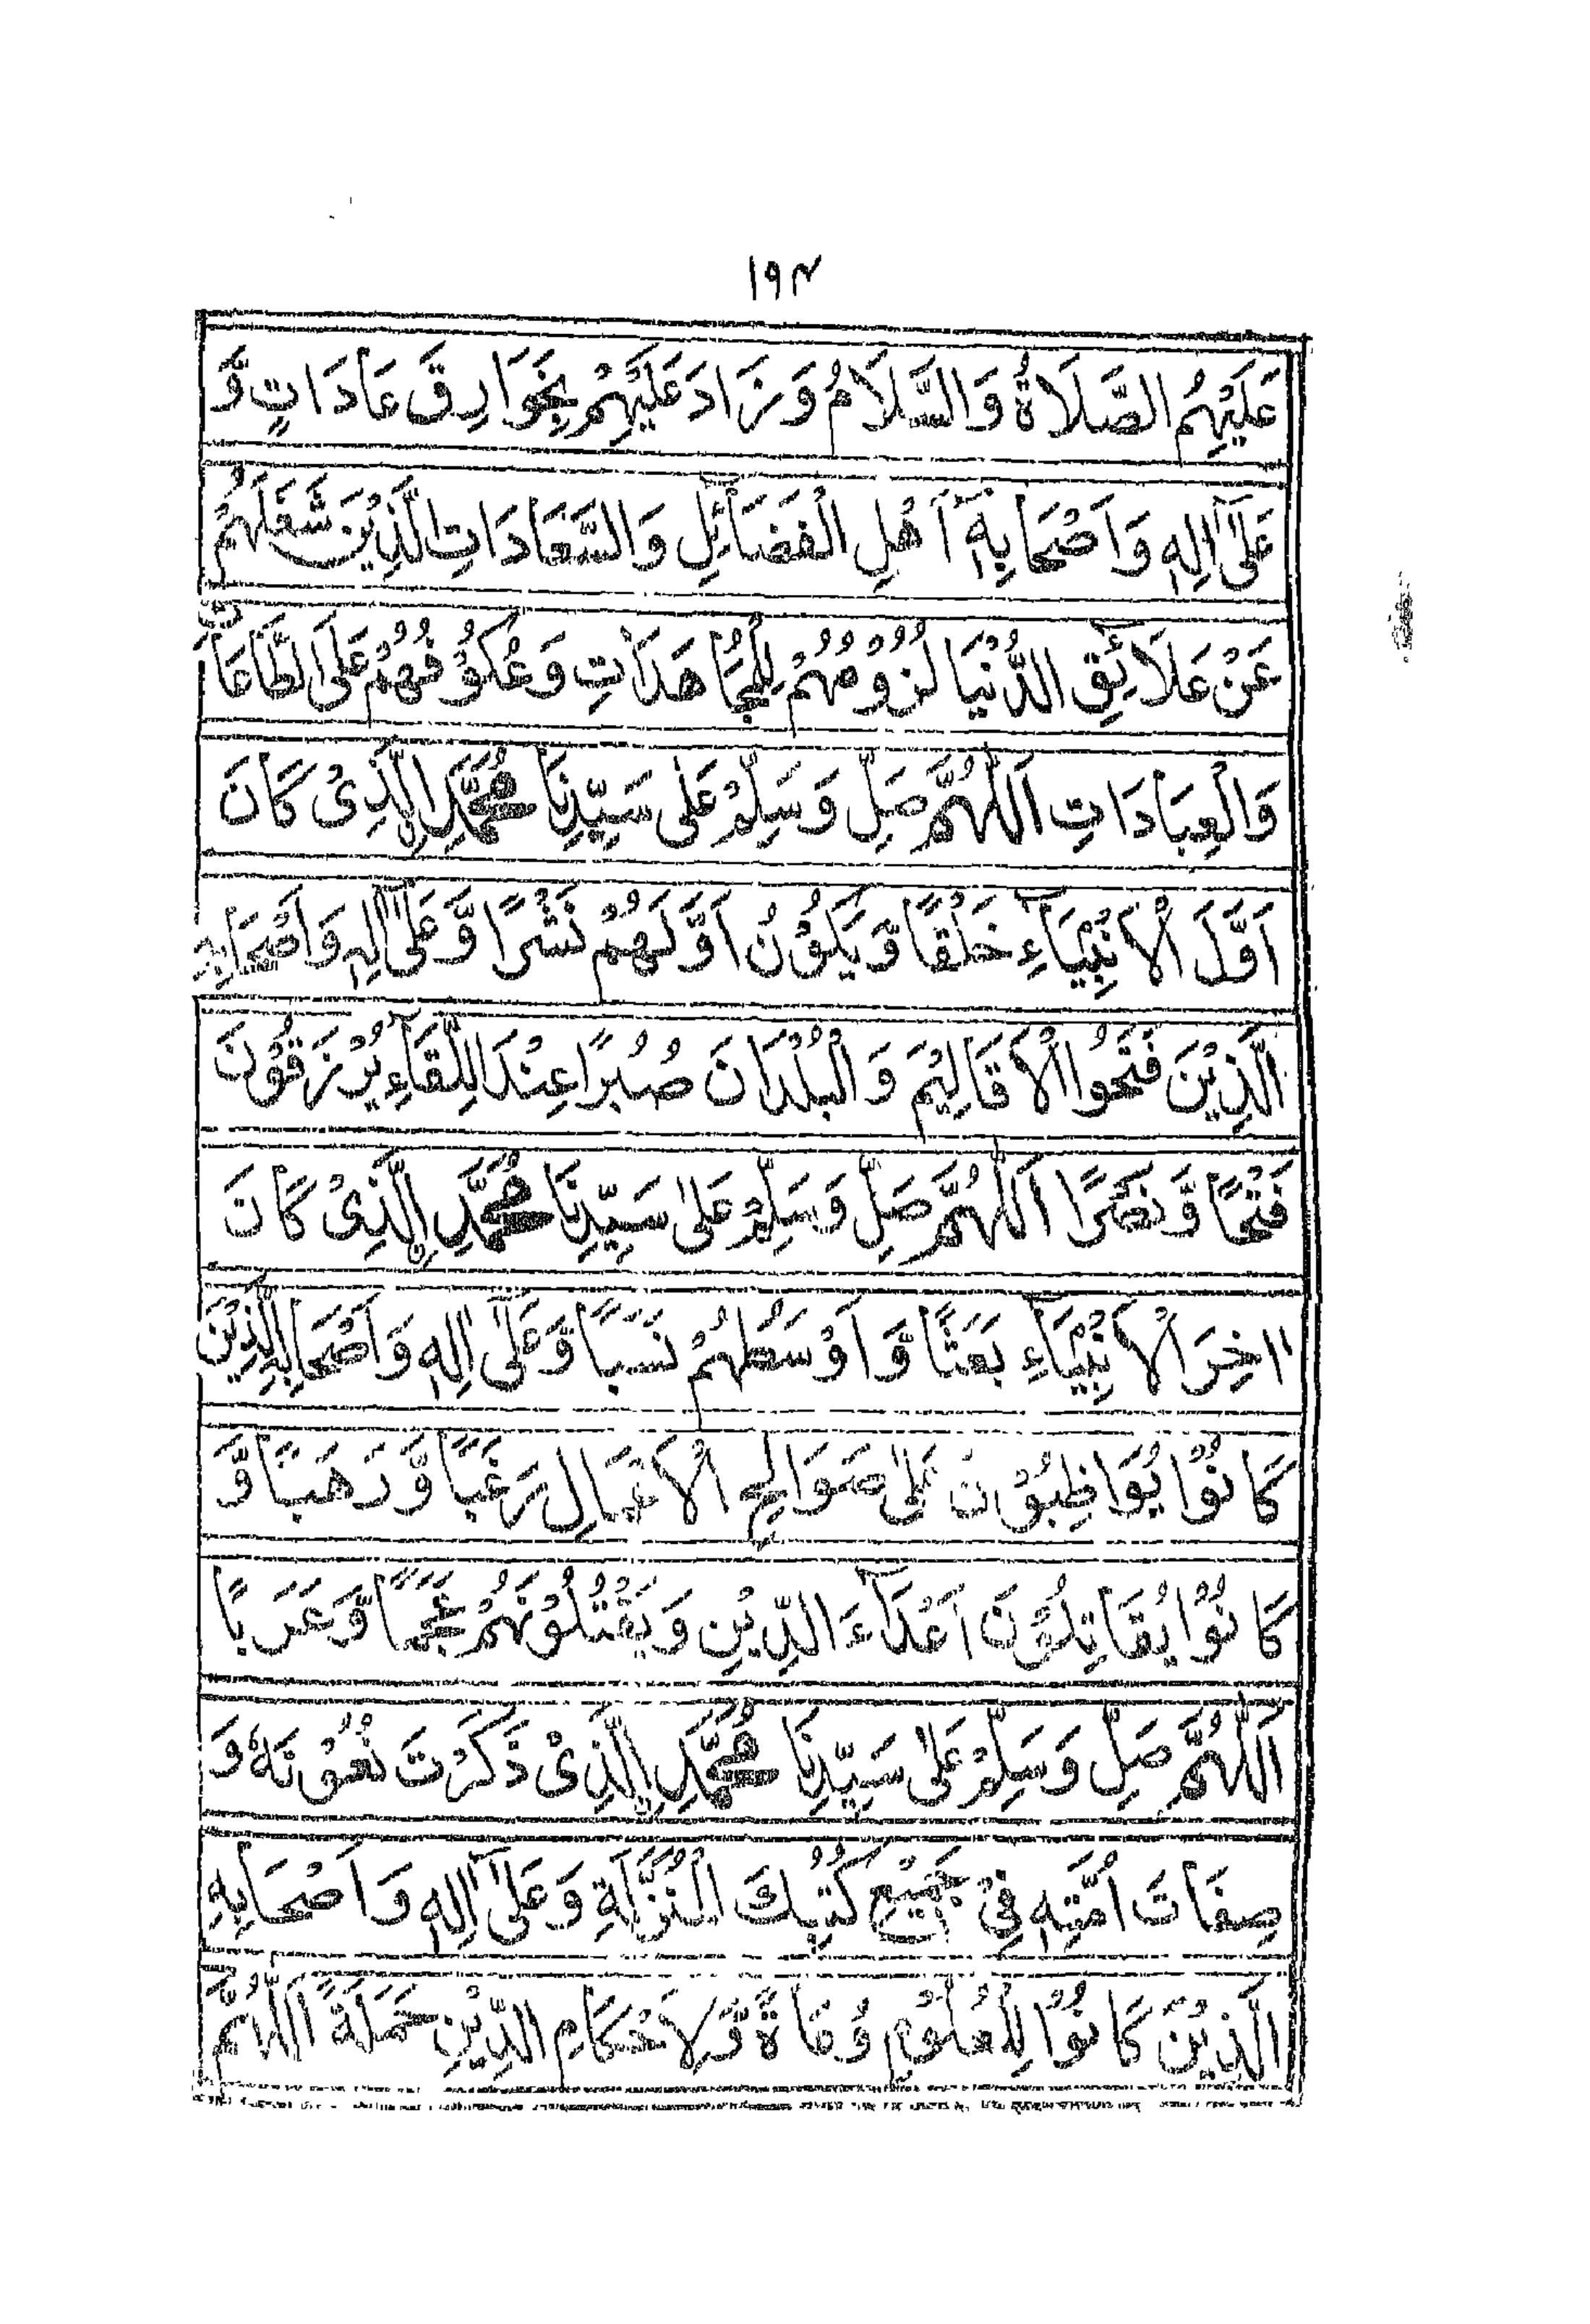 ۱۹۴
عَلَيْهِمُ الصَّلَاةُ وَالسَّلَامُ وَزَادَ عَلَيْهِمْ بِخَوَارِقَ عَادَاتٍ وَّ
عَلٰٓى اٰلِهٖ وَاَصْحَابِهٖٓ اَهْلِ الْفَضَآئِلِ وَالسَّعَادَاتِ الَّذِيْنَ شَغَلَهُمْ
عَنْ عَلَآئِقِ الدُّنْيَا لُزُوْمُهُمْ لِلْمُجَاهَدَاتِ وَعُكُوْفُهُمْ عَلَى الطَّاعَاتِ
وَالْعِبَادَاتِ اَللّٰهُمَّ صَلِّ وَسَلِّمْ عَلٰى سَيِّدِنَا مُحَمَّدِ اِلَّذِىْ كَانَ
اَوَّلَ الْاَنْبِيَآءِ خَلْقًا وَّيَكُوْنُ اَوَّلَهُمْ نَشْرًا وَّعَلٰٓى اٰلِهٖ وَاَصْحَابِهِ
الَّذِيْنَ فَتَحُوا الْاَقَالِيْمَ وَالْبُلْدَانَ صُبُرًا عِنْدَ اللِّقَآءِ يُرْزَقُوْنَ
فَتْحًا وَّنَصْرًا اَللّٰهُمَّ صَلِّ وَسَلِّمْ عَلٰى سَيِّدِنَا مُحَمَّدِ اِلَّذِىْ كَانَ
اٰخِرَ الْاَنْبِيَآءِ بَعَثًا وَّاَوْسَطَهُمْ نَسَبًا وَّعَلٰٓى اٰلِهٖ وَاَصْحَابِهِ الَّذِيْنَ
كَانُوْا يُوَاظِبُوْنَ عَلٰى صَوَالِحِ الْاَعْمَالِ رَغَبًا وَّرَهَبًا وَّ
كَانُوْا يُقَاتِلُوْنَ اَعْدَآءَ الدِّيْنِ وَيَقْتُلُوْنَهُمْ عَجَمًا وَّعَرَبًا
اَللّٰهُمَّ صَلِّ وَسَلِّمْ عَلٰى سَيِّدِنَا مُحَمَّدِ اِلَّذِىْ ذَكَرْتَ نُعُوْتَهٗ وَ
صِفَاتَ اُمَّتِهٖ فِىْ جَمِيْعِ كُتُبِكَ الْمُنَزَّلَةِ وَعَلٰٓى اٰلِهٖ وَاَصْحَابِهِ
الَّذِيْنَ كَانُوْا لِلْعُلُوْمِ وُعَاةً وَّلِاَحْكَامِ الدِّيْنِ حَمَلَةً اَللّٰهُمَّ